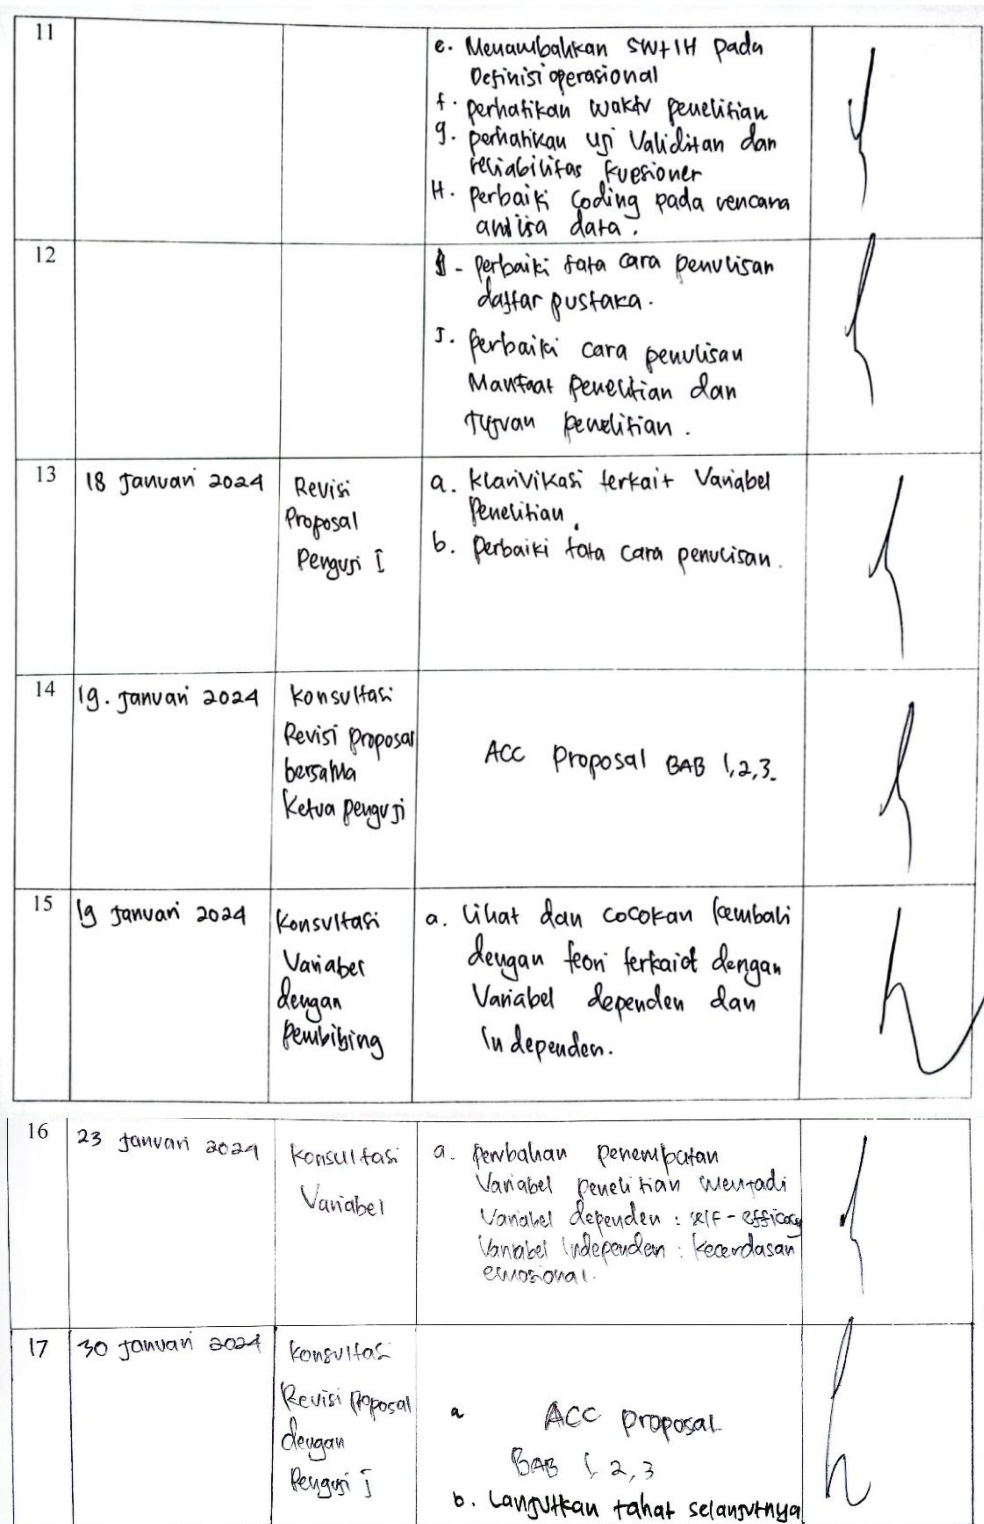 11
e. Menambahkan 5W+1H pada
Definisi operasional
f. perhatikan waktu penelitian
g. perhatikan uji Validitan dan
reliabilitas kuesioner
H. perbaiki coding pada rencana
analisa data.
12
- perbaiki tata cara penulisan
daftar pustaka.
J. perbaiki cara penulisan
Manfaat penelitian dan
Tujuan penelitian.
13
18 Januari 2024
Revisi
Proposal
Penguji I
a. klarivikasi terkait Variabel
Penelitian.
b. Perbaiki tata cara penulisan.
14
19. Januari 2024
Konsultasi
Revisi proposal
bersama
Ketua penguji
ACC Proposal BAB 1,2,3.
15
19 Januari 2024
Konsultasi
Variabel
dengan
pembibing
a. Lihat dan cocokan kembali
dengan teori terkaiot dengan
Variabel dependen dan
Independen.
16
23 Januari 2024
Konsultasi
Variabel
a. perubahan penempatan
Variabel penelitian menjadi
Variabel dependen : self-efficacy
Variabel Independen : Kecerdasan
emosional.
17
30 Januari 2024
Konsultasi
Revisi Proposal
dengan
Penguji I
a ACC proposal
BAB 1, 2, 3
b. Lanjutkan tahat selanjutnya